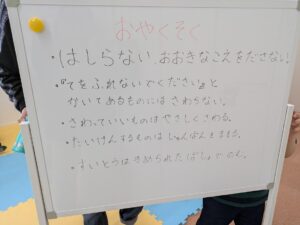 おやくそく
・はしらない、おおきなこえをださない。
・『てをふれないでください』と
かいてあるものにはさわらない。
・さわっていいものはやさしくさわる。
・たいけんするものはじゅんばんをまもる。
・すいとうはきめられたばしょでのむ。